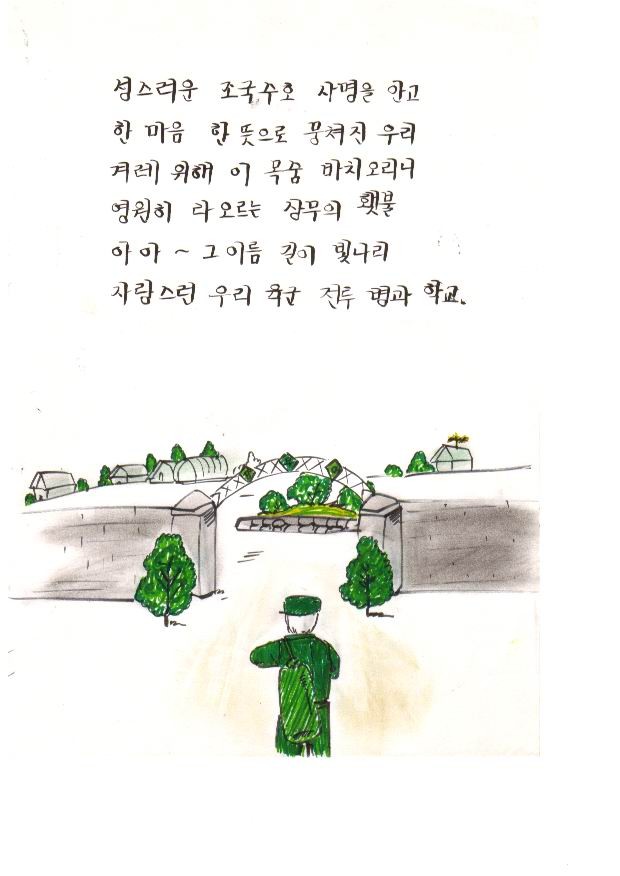 성스러운 조국수호 사명을 안고
한 마음 한 뜻으로 뭉쳐진 우리
겨레 위해 이 목숨 바치오리니
영원히 타오르는 상무의 횃불
아아 ~ 그 이름 길이 빛나리
자랑스런 우리 육군 전투 병과 학교.